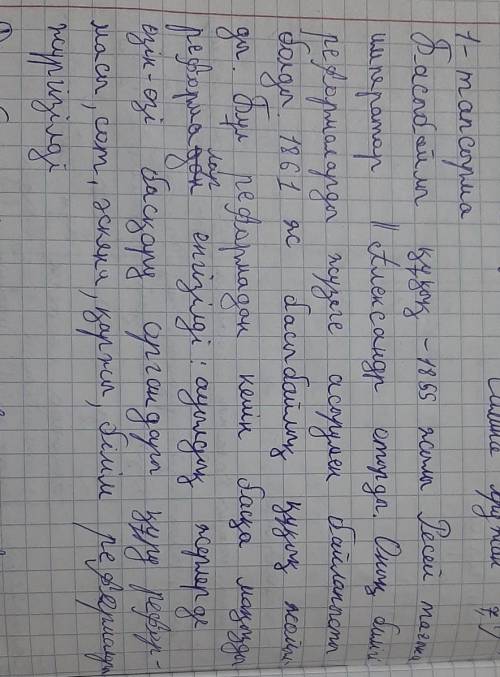 1 - тапсырма
Басыбайлы құқық - 1855 жылы Ресей тағына
император II Александр отырды. Оның билігі
реформаларды жүзеге асырумен байланысты
болды. 1861 ж басыбайлық құқық жойыл
ды. Бұл реформадан кейін басқа маңызды
реформалар енгізілді: ауылдық жерлерде
өзін-өзі басқару органдары құру рефор-
масы, сот, әскери, қаржы, білім реформасы
жүргізілді